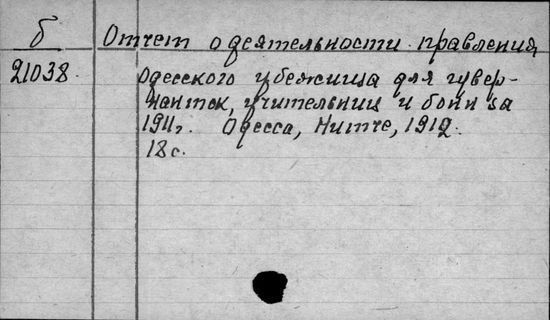 б
21038.
Отчет о деятельности правления
Одесского убежища для гувер-
нанток, учительниц и бонн за
1911г. Одесса, Нитче, 1912.
18 с.